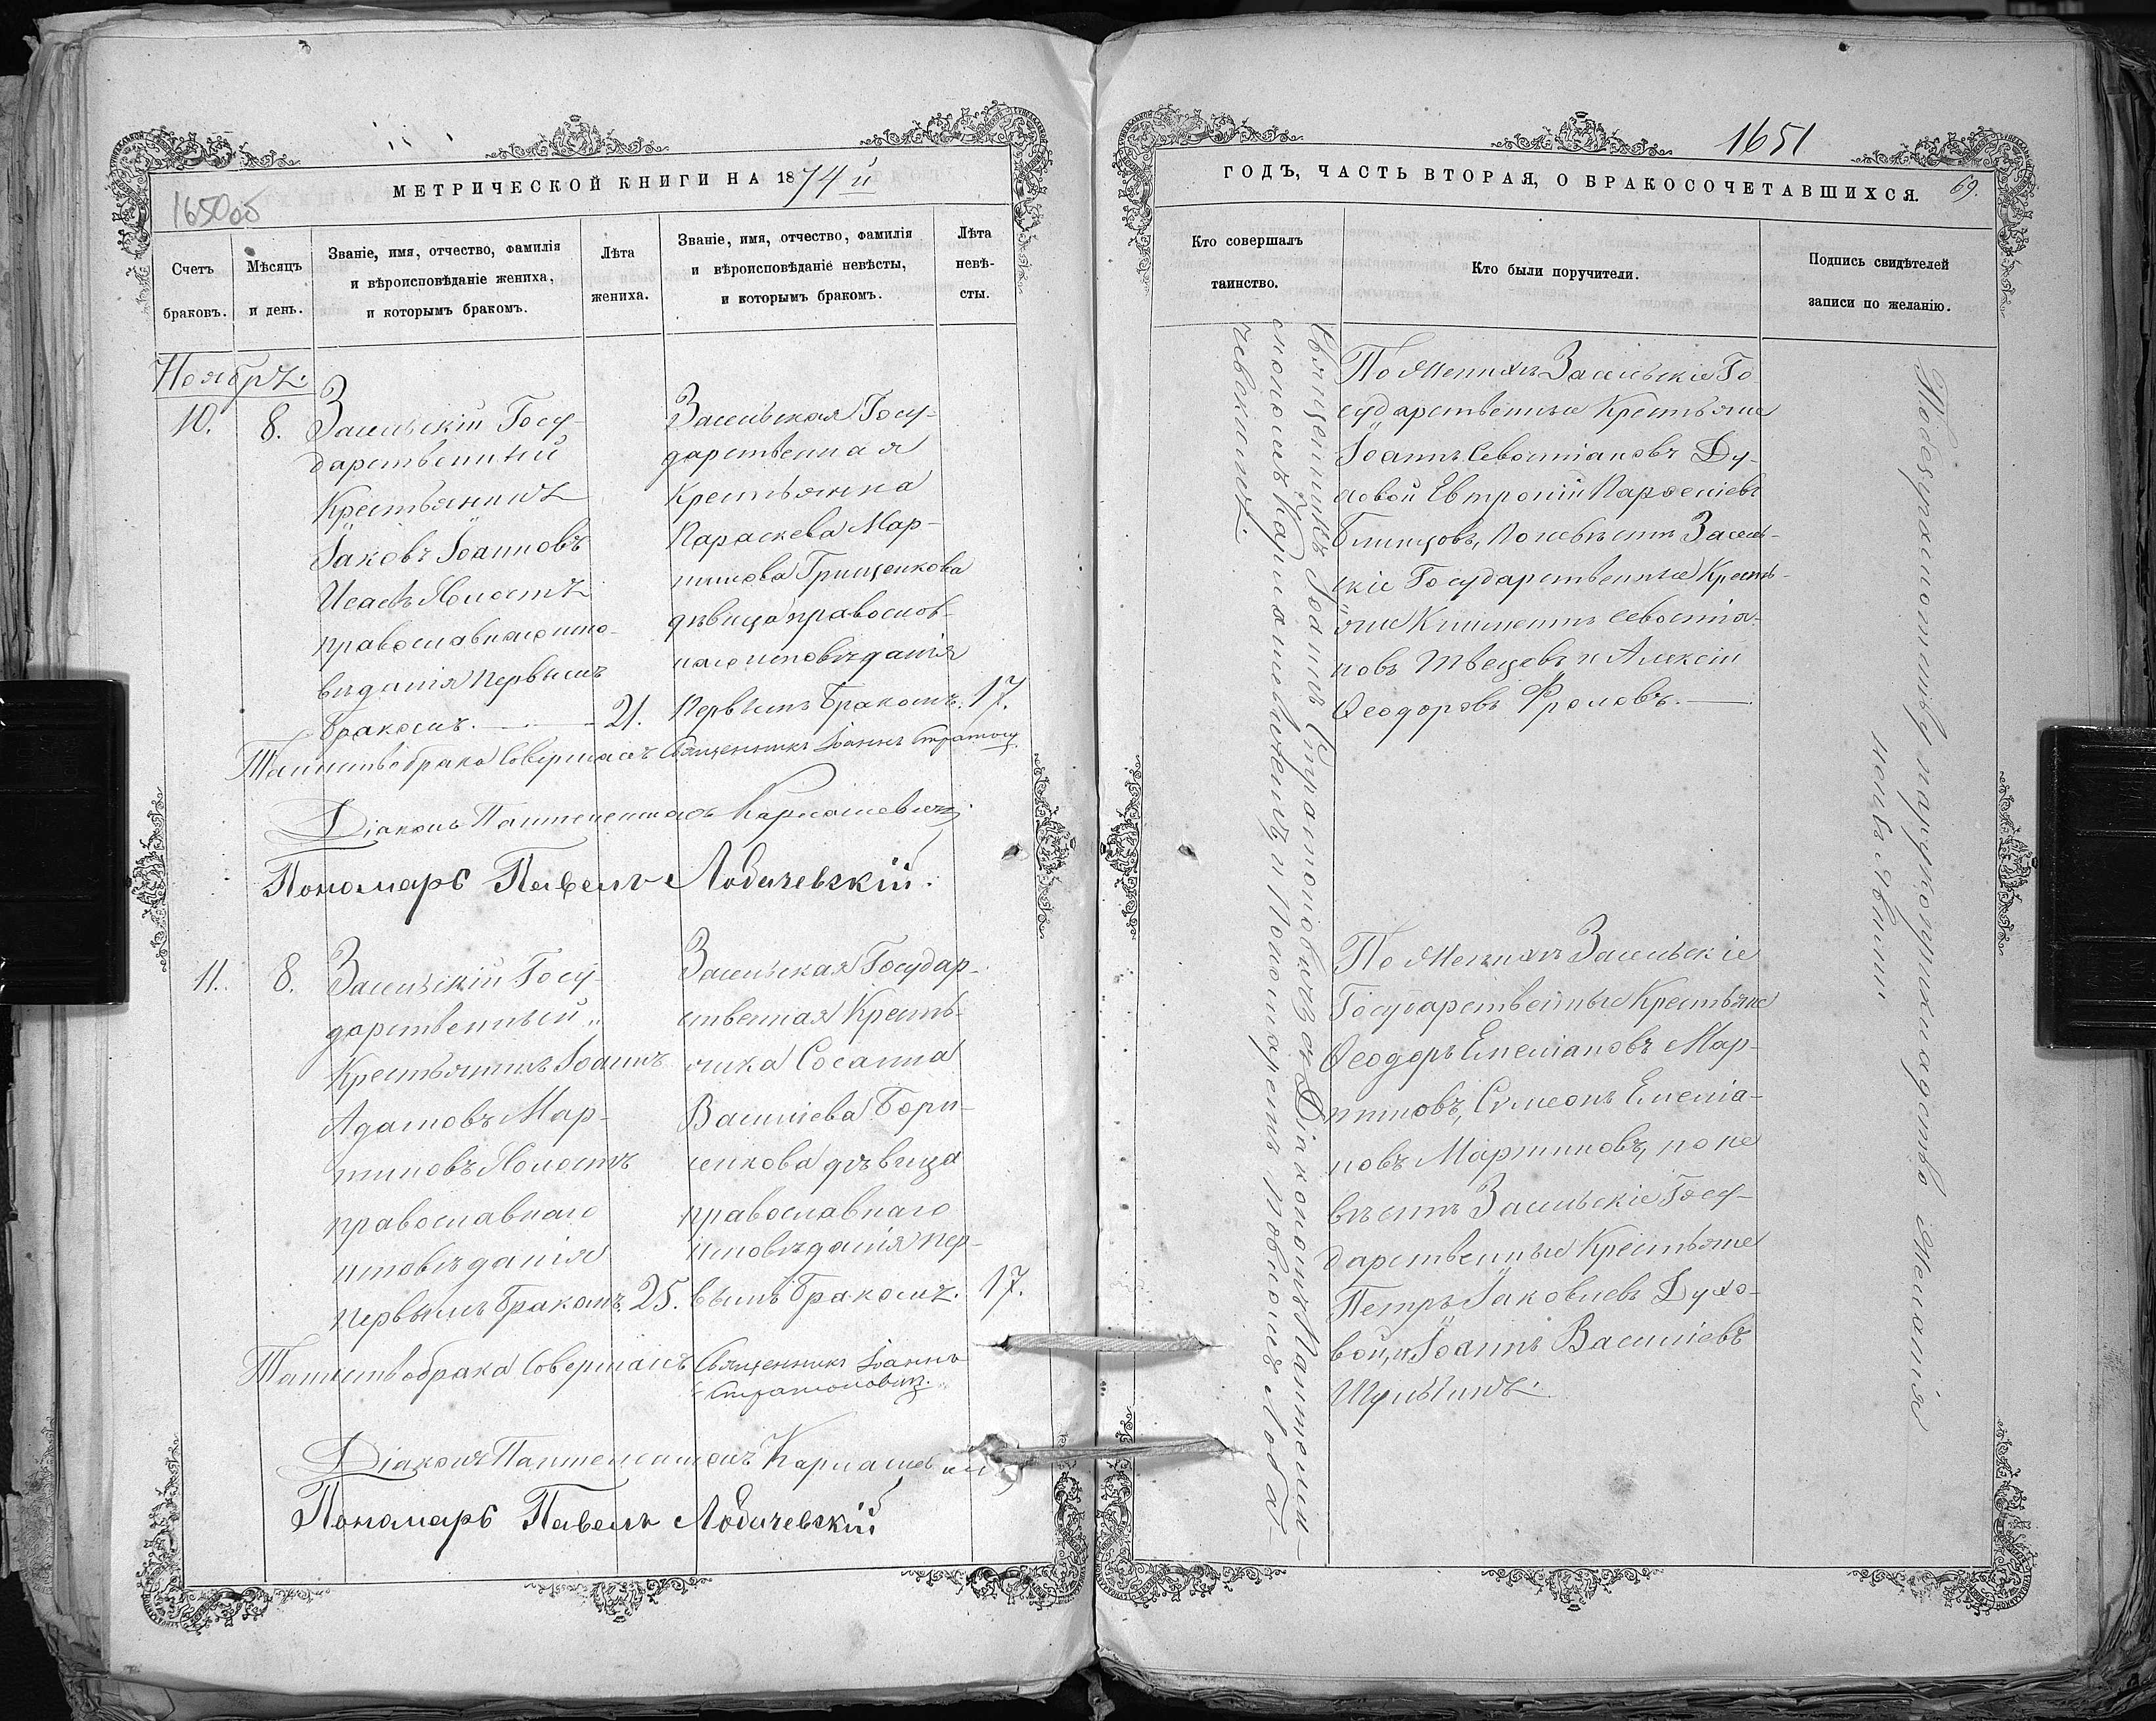 МЕТРИЧЕСКОЙ КНИГИ НА 1874й
1650об
Счетъ браковъ.
Мѣсяцъ и день.
Званіе, имя, отчество, фамилія
и вѣроисповѣданіе жениха,
и которымъ бракомъ.
Лѣта
жениха.
Званіе, имя, отчество, фамилія
и вѣроисповѣданіе невѣсты,
и которымъ бракомъ.
Лѣта
невѣ-
сты.
Ноябрь.
10.
8.
Засельскій Госу-
дарственный
Крестьянинъ
Іаковъ Іоанновъ
Исаевъ Холостъ
православнаго испо-
вѣданія первымъ
бракомъ.
21.
Засельская Госу-
дарственная
Крестьянка
Параскева Мар-
тинова Грищенкова
дѣвица православ-
наго исповѣданія
первымъ бракомъ.
17.
Таинство брака совершалъ Священникъ Іоаннъ
Діаконъ Пантелеимонъ Карпашевичъ
Пономарь Павелъ Лобачевскій.
11.
8.
Засельскій Госу-
дарственный
Крестьянинъ Іоаннъ
Адамовъ Мар-
тиновъ Холостъ
православнаго
исповѣданія
первымъ бракомъ.
25.
Засельская Государ-
ственная Кресть-
янка Сосанна
Василіева Бори-
сенкова дѣвица
православнаго
исповѣданія пер-
вымъ бракомъ.
17.
Таинство брака совершалъ Священникъ Іоаннъ
Стратоновичъ.
Діаконъ Пантелеимонъ
Пономарь Павелъ Лобачевскій
1651
ГОДЪ, ЧАСТЬ ВТОРАЯ, О БРАКОСОЧЕТАВШИХСЯ.
69.
Кто совершалъ
таинство.
Кто были поручители.
Подпись свидѣтелей
записи по желанію.
Священникъ Іоаннъ Стратоновичъ съ Діакономъ Пантелеи-
мономъ Карпашевичемъ и Пономаремъ Павломъ Лоба-
чевскимъ.
По Женихѣ Засельскіе Го
сударственные Крестьяне
Іоаннъ Севостіановъ Ду-
ховой Евтропій Парфеніевъ
Блинцовъ, По невѣстѣ Засель-
скіе Государственные Кресть-
яне Климентъ Севостія-
новъ Швецовъ и Алексій
Ѳеодоровъ Фроловъ.
По Женихѣ Засельскіе
Государственные Крестьяне
Ѳеодоръ Емеліановъ Мар-
тиновъ, Сумеонъ Емеліа-
новъ Мартиновъ, по не
вѣстѣ Засельскіе Госу-
дарственные Крестьяне
Петръ Іаковлевъ Духо-
вой, и Іоаннъ Василіевъ
Шульгинъ.